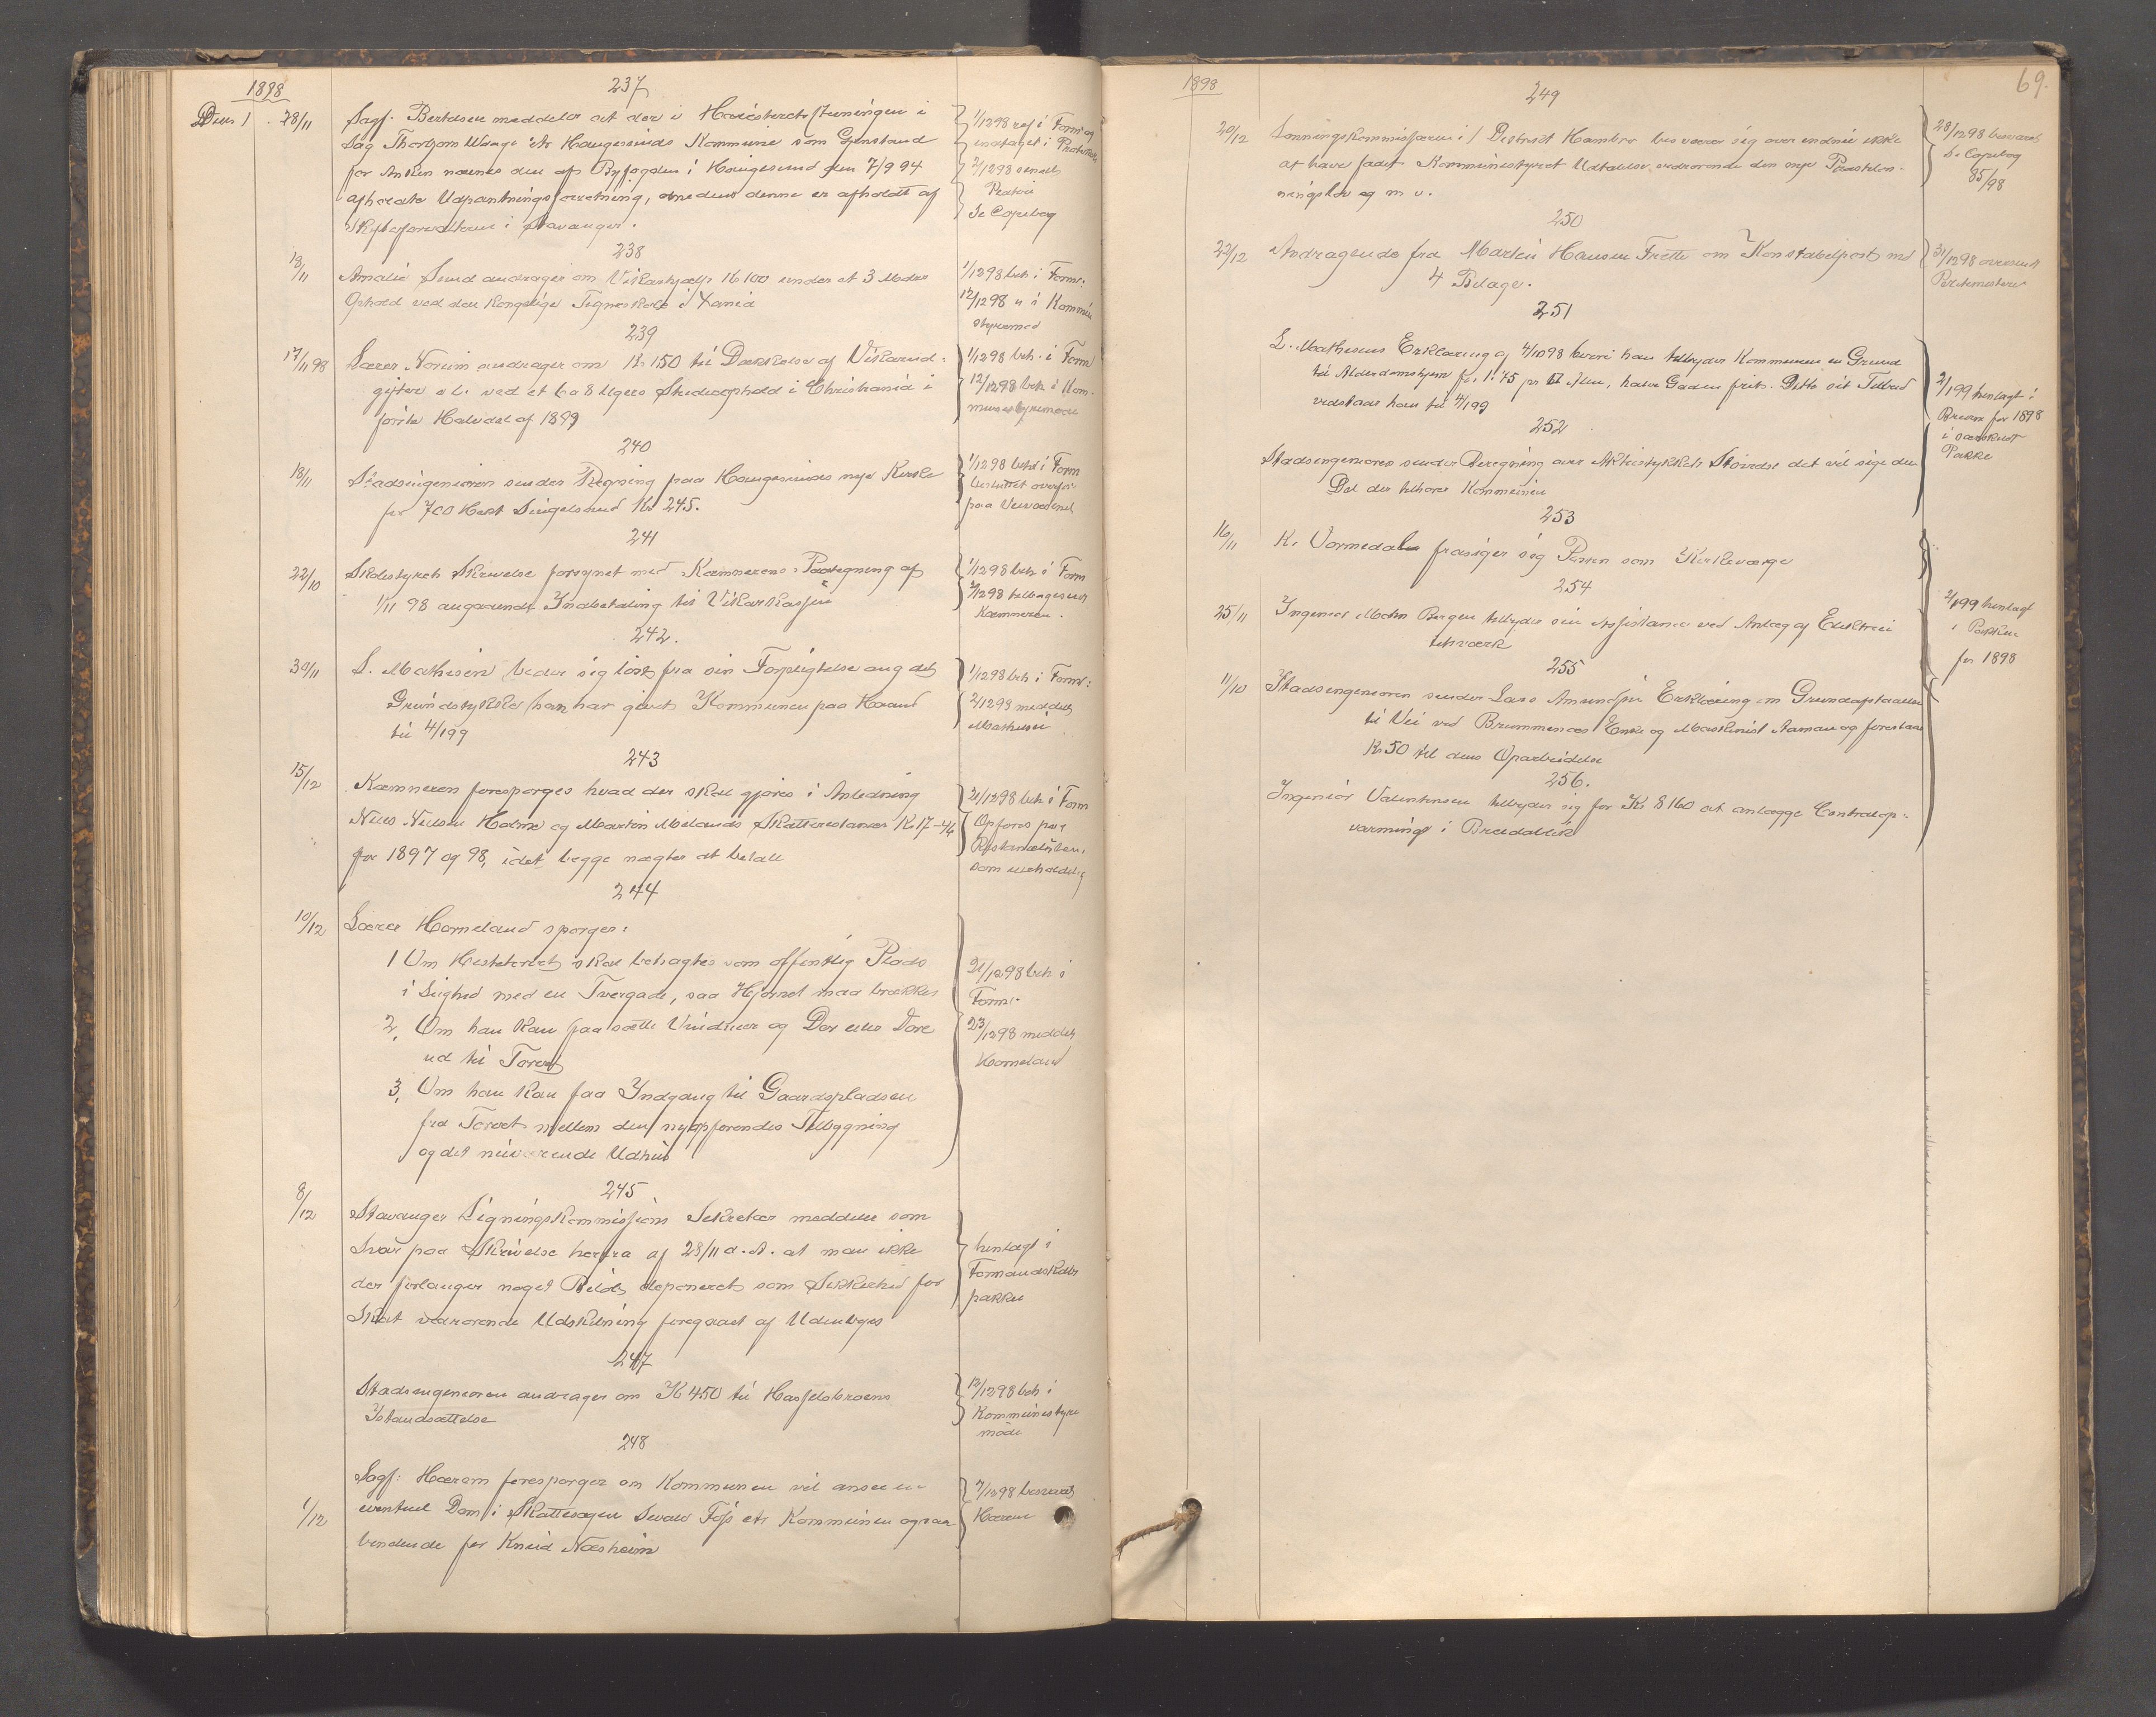 1898
237
28/11
Sagf. Bertelsen meddeler at der i Høiesteretsstevningen i
Sag Thorbjørn Waage ctr Haugesunds Kommune som Gjenstand
for Anken nævnes den af Byfogden i Haugesund den 7/9 94
afholdte Udpantningsforretning, medens denne er afholdt af
i Stavanger.
1/1298 ref i Form og
indtaget i
2/1298 sendt
Se Copibog
238
18/11
Amalie Sund andrager om Vikarhjælp Kr 100 under et 3 Mdrs
Ophold ved den Kongelige Tegneskole i Xania
1/1298 beh i Form:
12/1298 " i Kommune
styremøde
239
17/11 98
Lærer Norum andrager om Kr 150 til Dækkelse af Vikarud-
gifter o l. ved et 6 a 8 Ugers Studieophold i Christiania i
første Halvdel af 1899
1/1298 beh. i Form
12/1298 beh i Kom-
munestyremøde
240
18/11
Stadsingeniøren sender Regning paa Haugesunds nye Kirke
for 700 Hekt Singelsand Kr 245.
1/1298 behd i Form
besluttet overf.
paa Veivæsenet
241
22/10
Skolestyrets Skrivelse forsynet med Kæmnerens Paategning af
1/11 98 angaaende Indbetaling til Vikarkassen
1/1298 beh i Form
2/1298 tilbagesendt
Kæmneren.
242.
30/11
L. Mathisen beder sig løst fra sin Forpligtelse ang det
Grundstykke han har givet Kommunen paa Haand
til 4/1 99
1/1298 beh i Form:
2/1298 meddelt
Mathisen
243
15/12
Kæmneren foresporges hvad der skal gjøres i Anledning
Nils Nilsen Holme og Martin Melands Skatterestancer Kr 17-46
for 1897 og 98, idet begge nægter at betale
21/1298 beh i Form
Opføres paa
Restancelisten,
som uerholdelig
244
10/12
Lærer Horneland spørger:
1 Om Hestetorvet skal betragtes som offentlig Plads
i Lighed med en Tvergade, saa Hjørnet maa brækkes
2, Om han kan faa sætte Vinduer og Dør eller Døre
ud til Torvet
3, Om han kan faa Indgang til Gaardspladsen
fra Torvet mellem den nyopførendes Tilbygning
og det nuværende Udhus
21/1298 beh i
Form.
23/1298 meddelt
Horneland
245
8/12
Stavanger Ligningskommissions Sekretær meddeler som
Svar paa Skrivelse herfra af 28/11 d. A. at man ikke
der forlanger noget Beløb deponeret som Sikkerhed for
Skat vedrørende Udskibning foregaaet af Udenbyes
henlagt i
Formandskabs
pakke
247
Stadsingeniøren andrager om Kr 450 til Hasselobroens
Istandsættelse
12/1298 beh i
Kommunestyre
møde
248
1/12
Sagf: Hærem foresporger om Kommunen vil anse en
eventuel Dom i Skattesagen Sevald Fos ctr Kommunen ogsaa
bindende for Knud Næsheim
7/1298 besvaret
Hærem
1898
69.
249
20/12
Lønningskommissæren i 1 Distrikt Hambro besværer sig over endnu ikke
at have faaet Kommunestyret Udtalelse vedrørende den nye
ningslov og m v.
28/1298 besvaret
Se Copibog
85/98
250
22/12
Andragende fra Martin Hansen Frette om Konstabelpost med
4 Bilage.
31/1298 oversendt
Politimesteren
251
L. Mathisens Erklæring af 4/10 98 hvori han tilbyder Kommunen en Grund
til Alderdomshjem for 1.45 pr □ Alen, halve Gaden frit. Dette sit Tilbud
vedstaar han til 4/1 99
2/1 99 henlagt i
for 1898
i særskilt
Pakke
252
Stadsingeniøren sender Beregning over Stykkets Størrelse det vil sige den
Del der tilhører Kommunen
253
16/11
K. Vormedal frasiger sig Posten som Kirkeværge
254
25/11
Ingeniør Mohn Bergen tilbyder sin Assistance ved Anlæg af Elektrici
tetsværk
2/1 99 henlagt
i Pakken
for 1898
255
11/10
Stadsingeniøren sender Lars Amundsens Erklæring om Grundafstaaelse
til Vei ved Brummenæs Enke og Maskinist Aaman og foreslaar
Kr 50 til dens Oparbeidelse
256.
Ingeniør Valentinsen tilbyder sig for Kr 8160 at anlægge Centralop-
varming i Breidablik